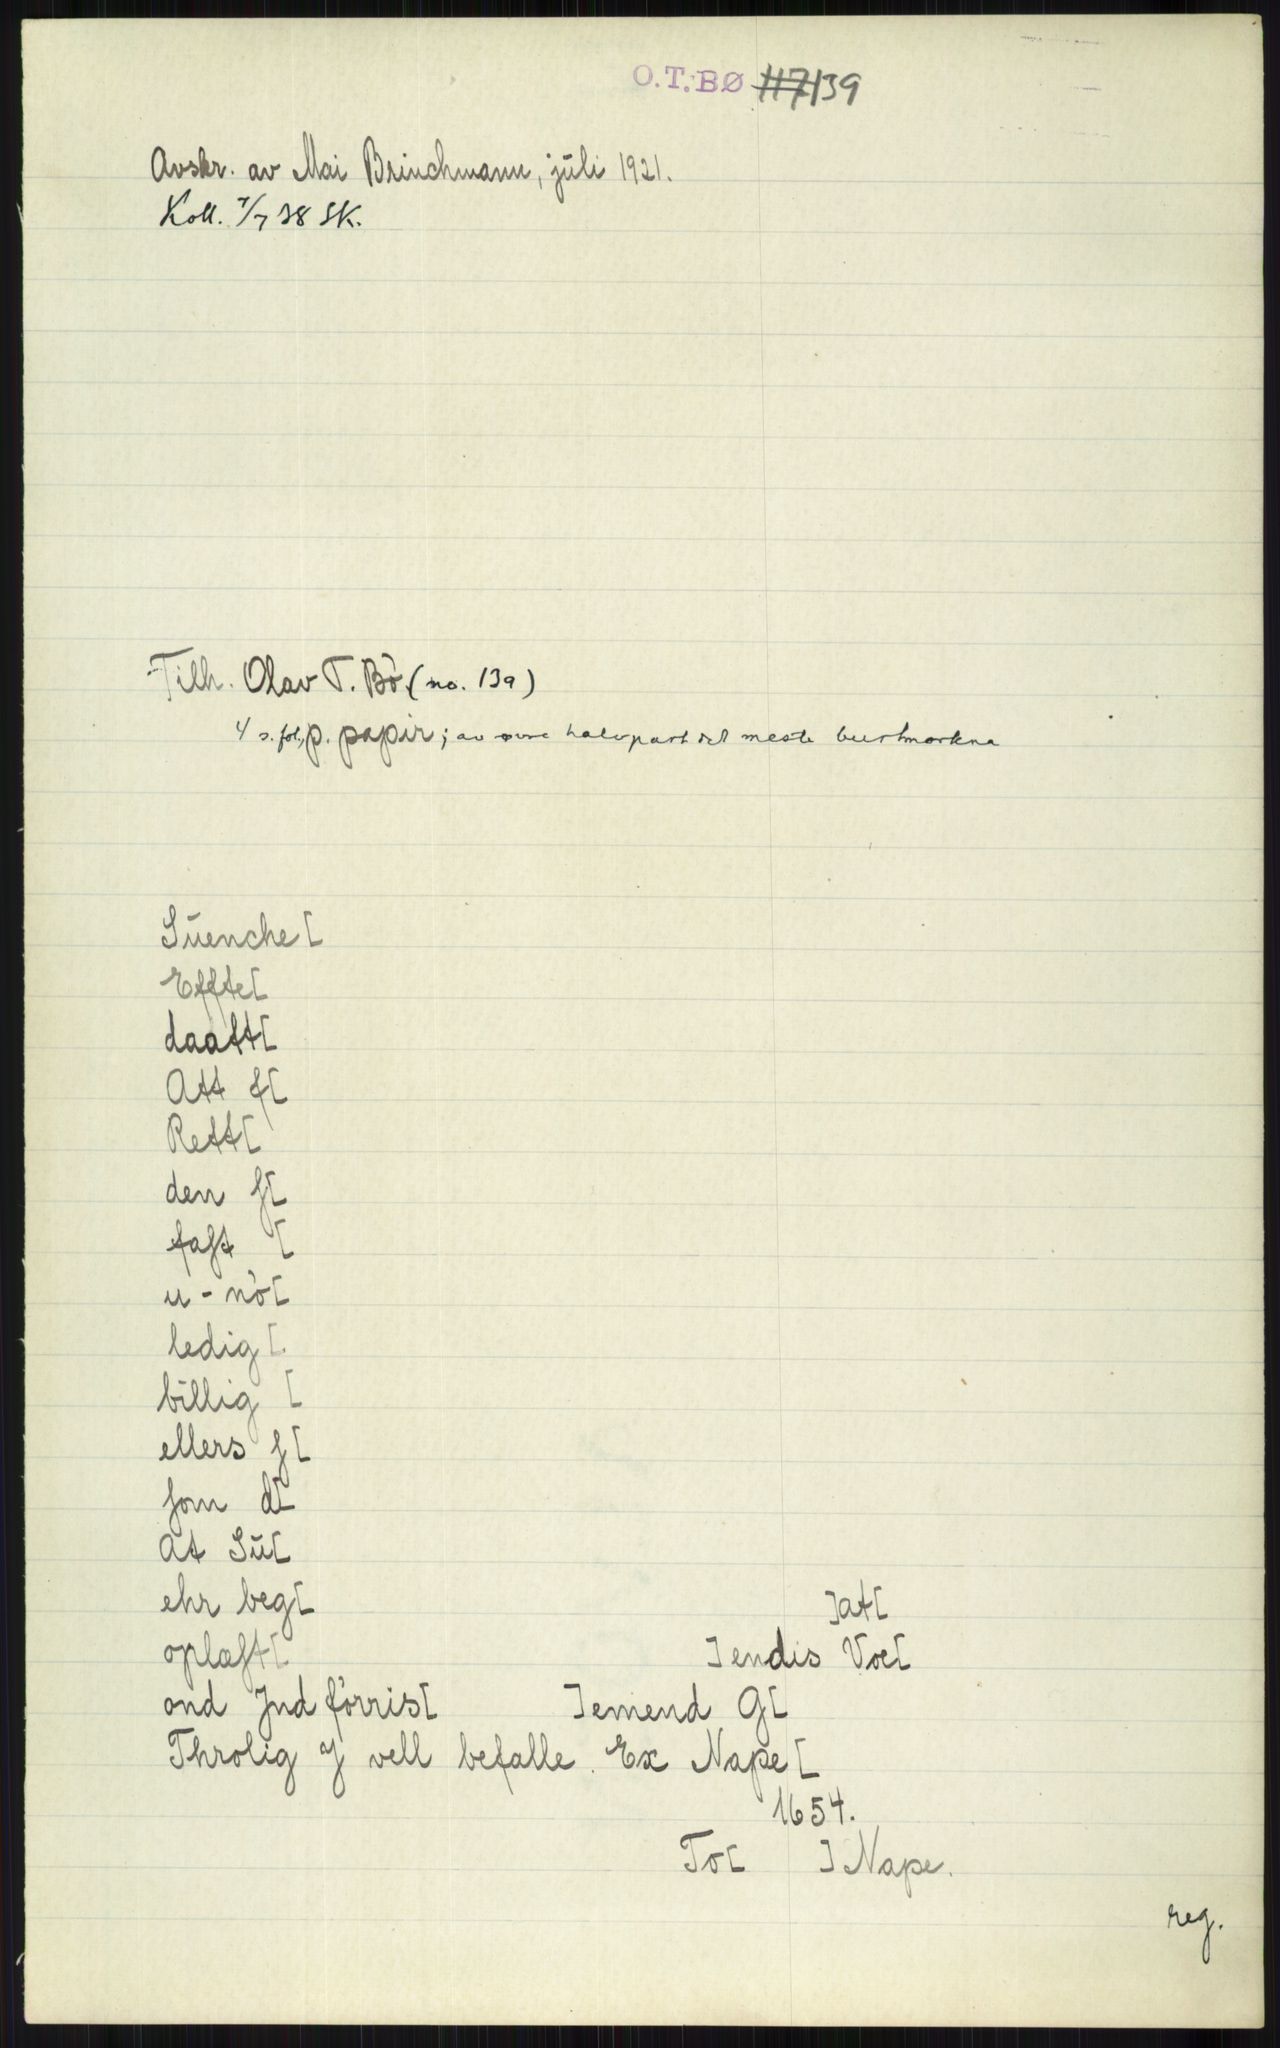 O.T.BØ 117139
Avskr. av Mai Brinchmann, juli 1921.
Koll. 7/7 38 SK.
Tilh. Olav T. Bö (no. 139)
4 s. fol, p. papir; av øvre halvpart det meste burtmorkna
Suenche[
Effte[
daatt[
Att f[
Rett[
den ſ[
faſt [
u-nö[
ledig [
billig [
ellers ſ[
ſom d[
At Su[
ehr beg[ ]at[
oplaſt[ ]endis Voe[
ond Jnd förris[ ]emend G[
Throlig J vell befalle. Ex Nape[
1654.
To[ ]Nape.
reg.